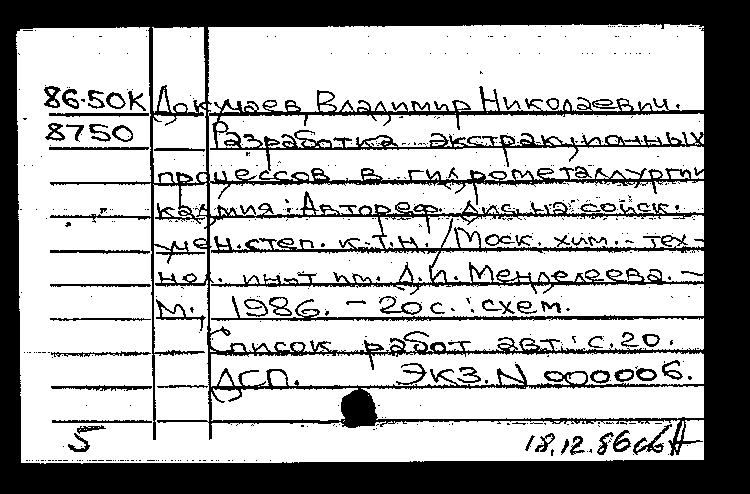 86-50К Докучаев, Владимир Николаевич.
8750 Разработка экстракционных
процессов в гидрометаллургии
кадмия : Автореф. дис. на соиск.
учен. степ. к.т.н. / Моск. хим.-тех-
нол. ин-т им. Д.И. Менделеева. –
М., 1986. – 20 с. : схем.
Список работ авт.: с. 20.
ДСП. ЭКЗ. N 000006.
5 18.12.86